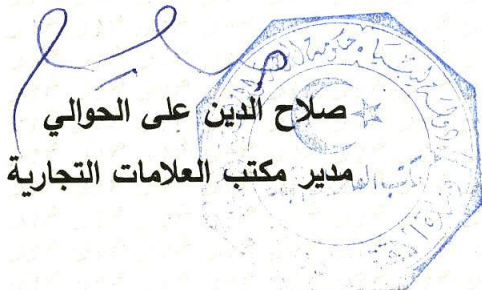 صلاح الدين على الحوالي
مدير مكتب العلامات التجارية